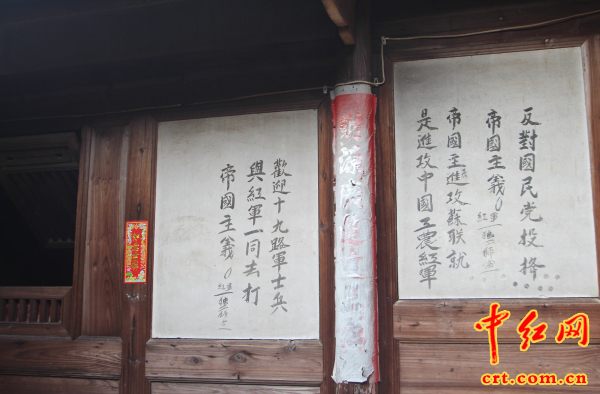 反對國民党投降
帝國主義
帝國主义進攻蘇联就
是進攻中國工農紅軍
歡迎十九路軍士兵
與紅軍一同去打
帝國主義
中红网
crt.com.cn